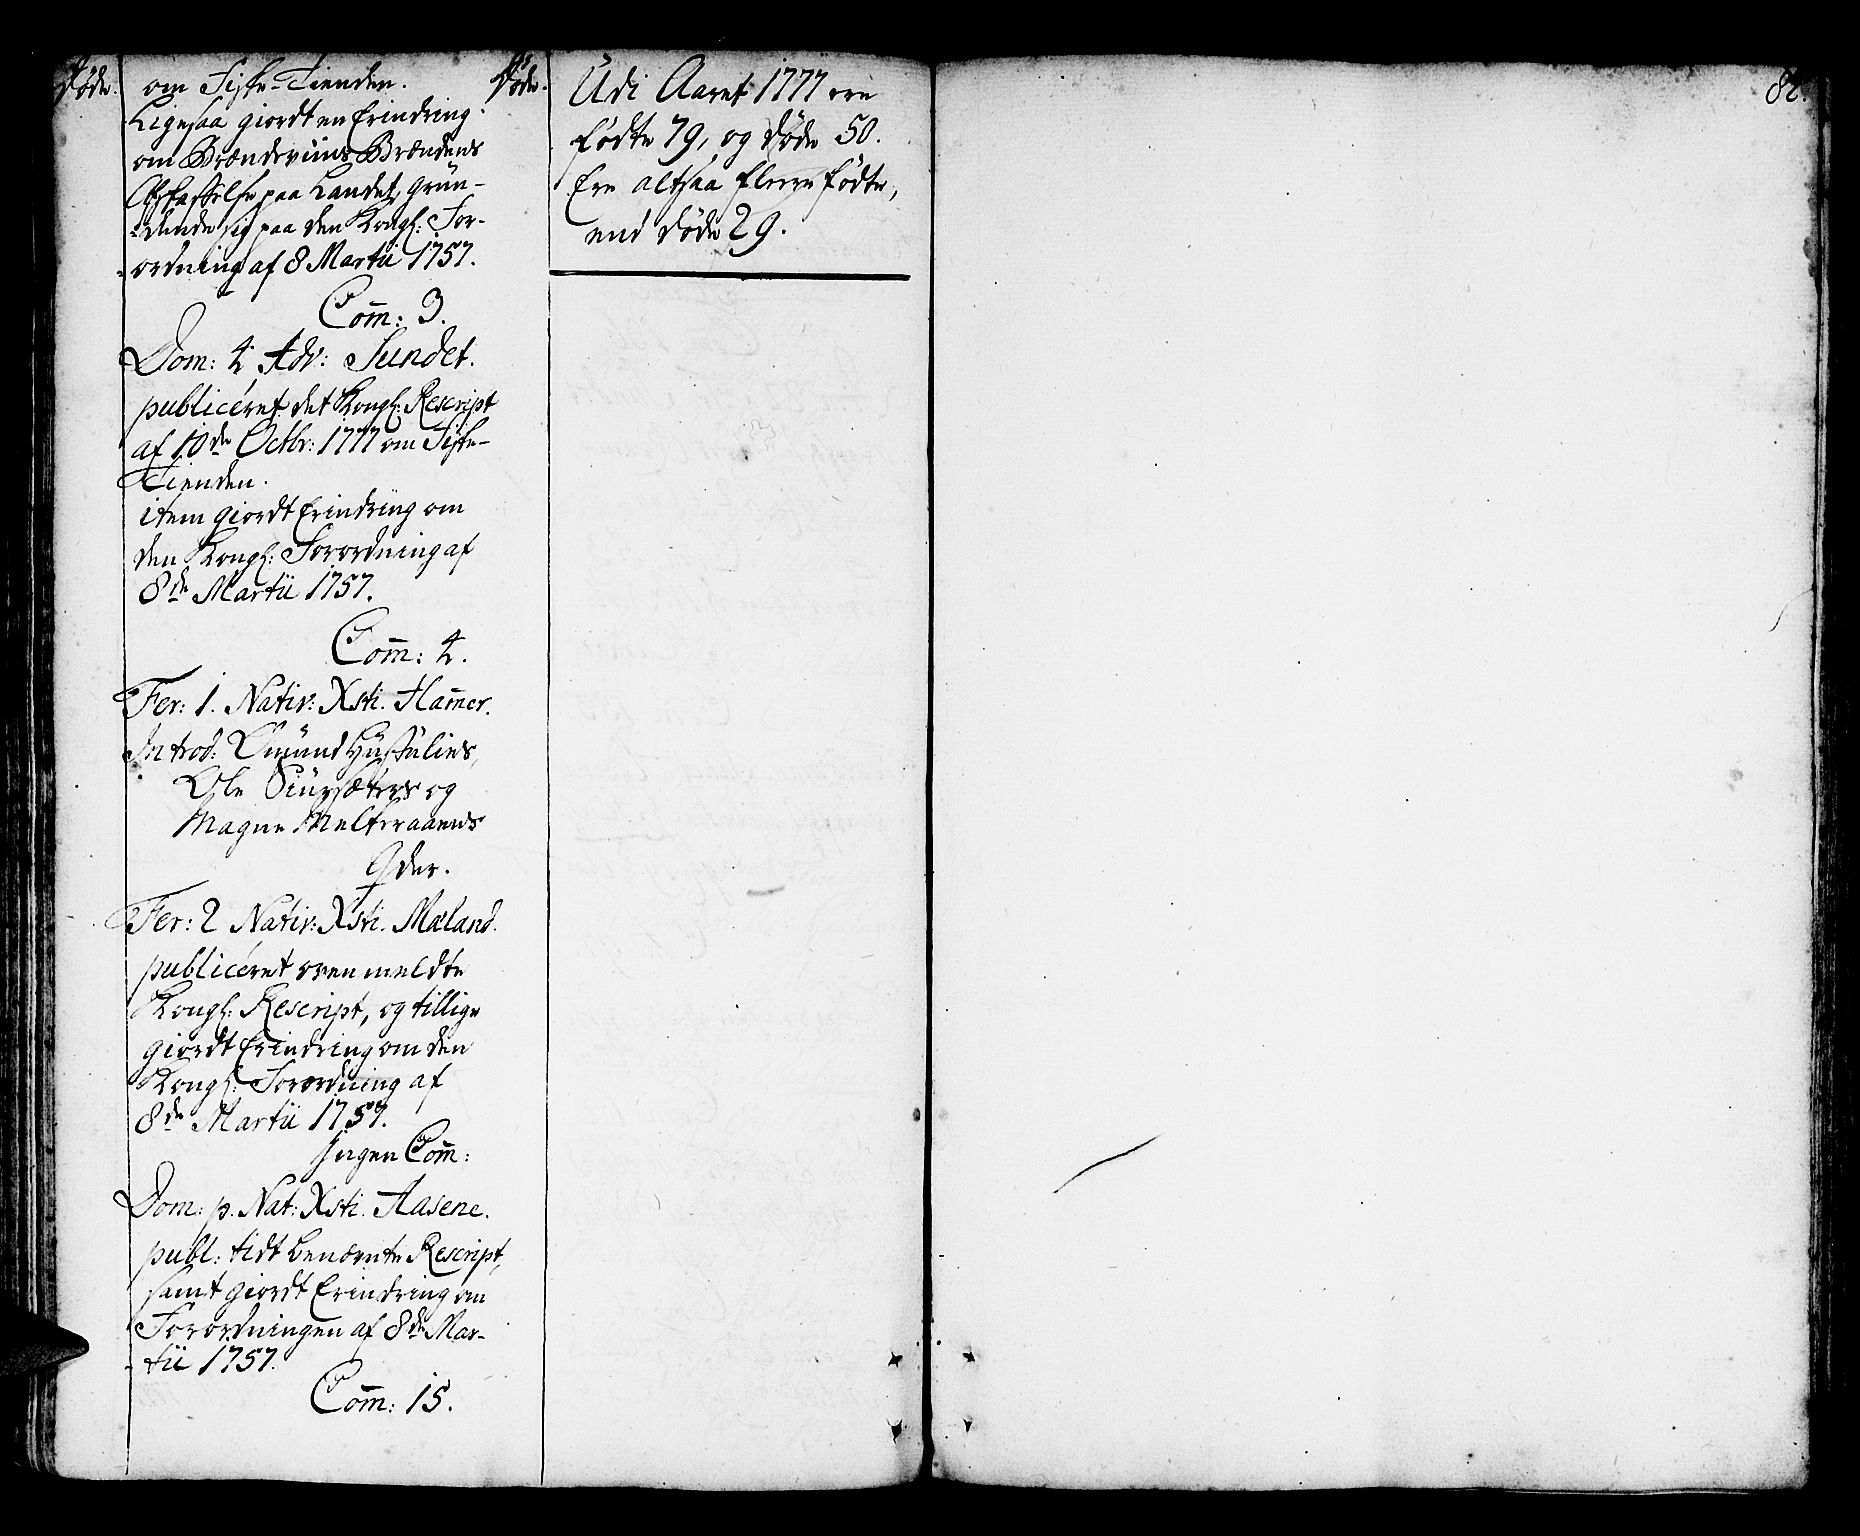 Døde.
om Fiske-Tienden.
Ligesaa giordt en Erindring
om Brændeviins Brændens
Afskaffelse paa Landet, grün-
-dende sig paa den Kongl: For-
-ordning af 8 Martii 1757.
Com̅: 3.
Dom: 4 Adv: Sundet.
publiceret det Kongl: Rescript
af 10de Octbr: 1777 om Fiske-
Tienden.
item giordt Erindring om
den Kongl: Forordning af
8de Martii 1757.
Com̅: 4.
Fer: 1. Nativ: Xsti. Ham̅er.
Introd: Omünd
Ole
Magne
Qder.
Fer: 2 Nativ: Xsti. Mæland.
publiceret ovenmeldte
Kongl: Rescript, og tillige
giordt Erindring om den
Kongl: Forordning af
8de Martii 1757.
Ingen Com̅:
Dom: p. Nat: Xsti. Aasene.
publ: tidt benævnte Rescript,
samt giordt Erindring om
Forordningen af 8de Mar-
-tii 1757.
Com̅: 15.
Døde.
Udi Aaret 1777 ere
fødte 79, og døde 50.
Ere altsaa fleere fødte,
end døde 29.
82.